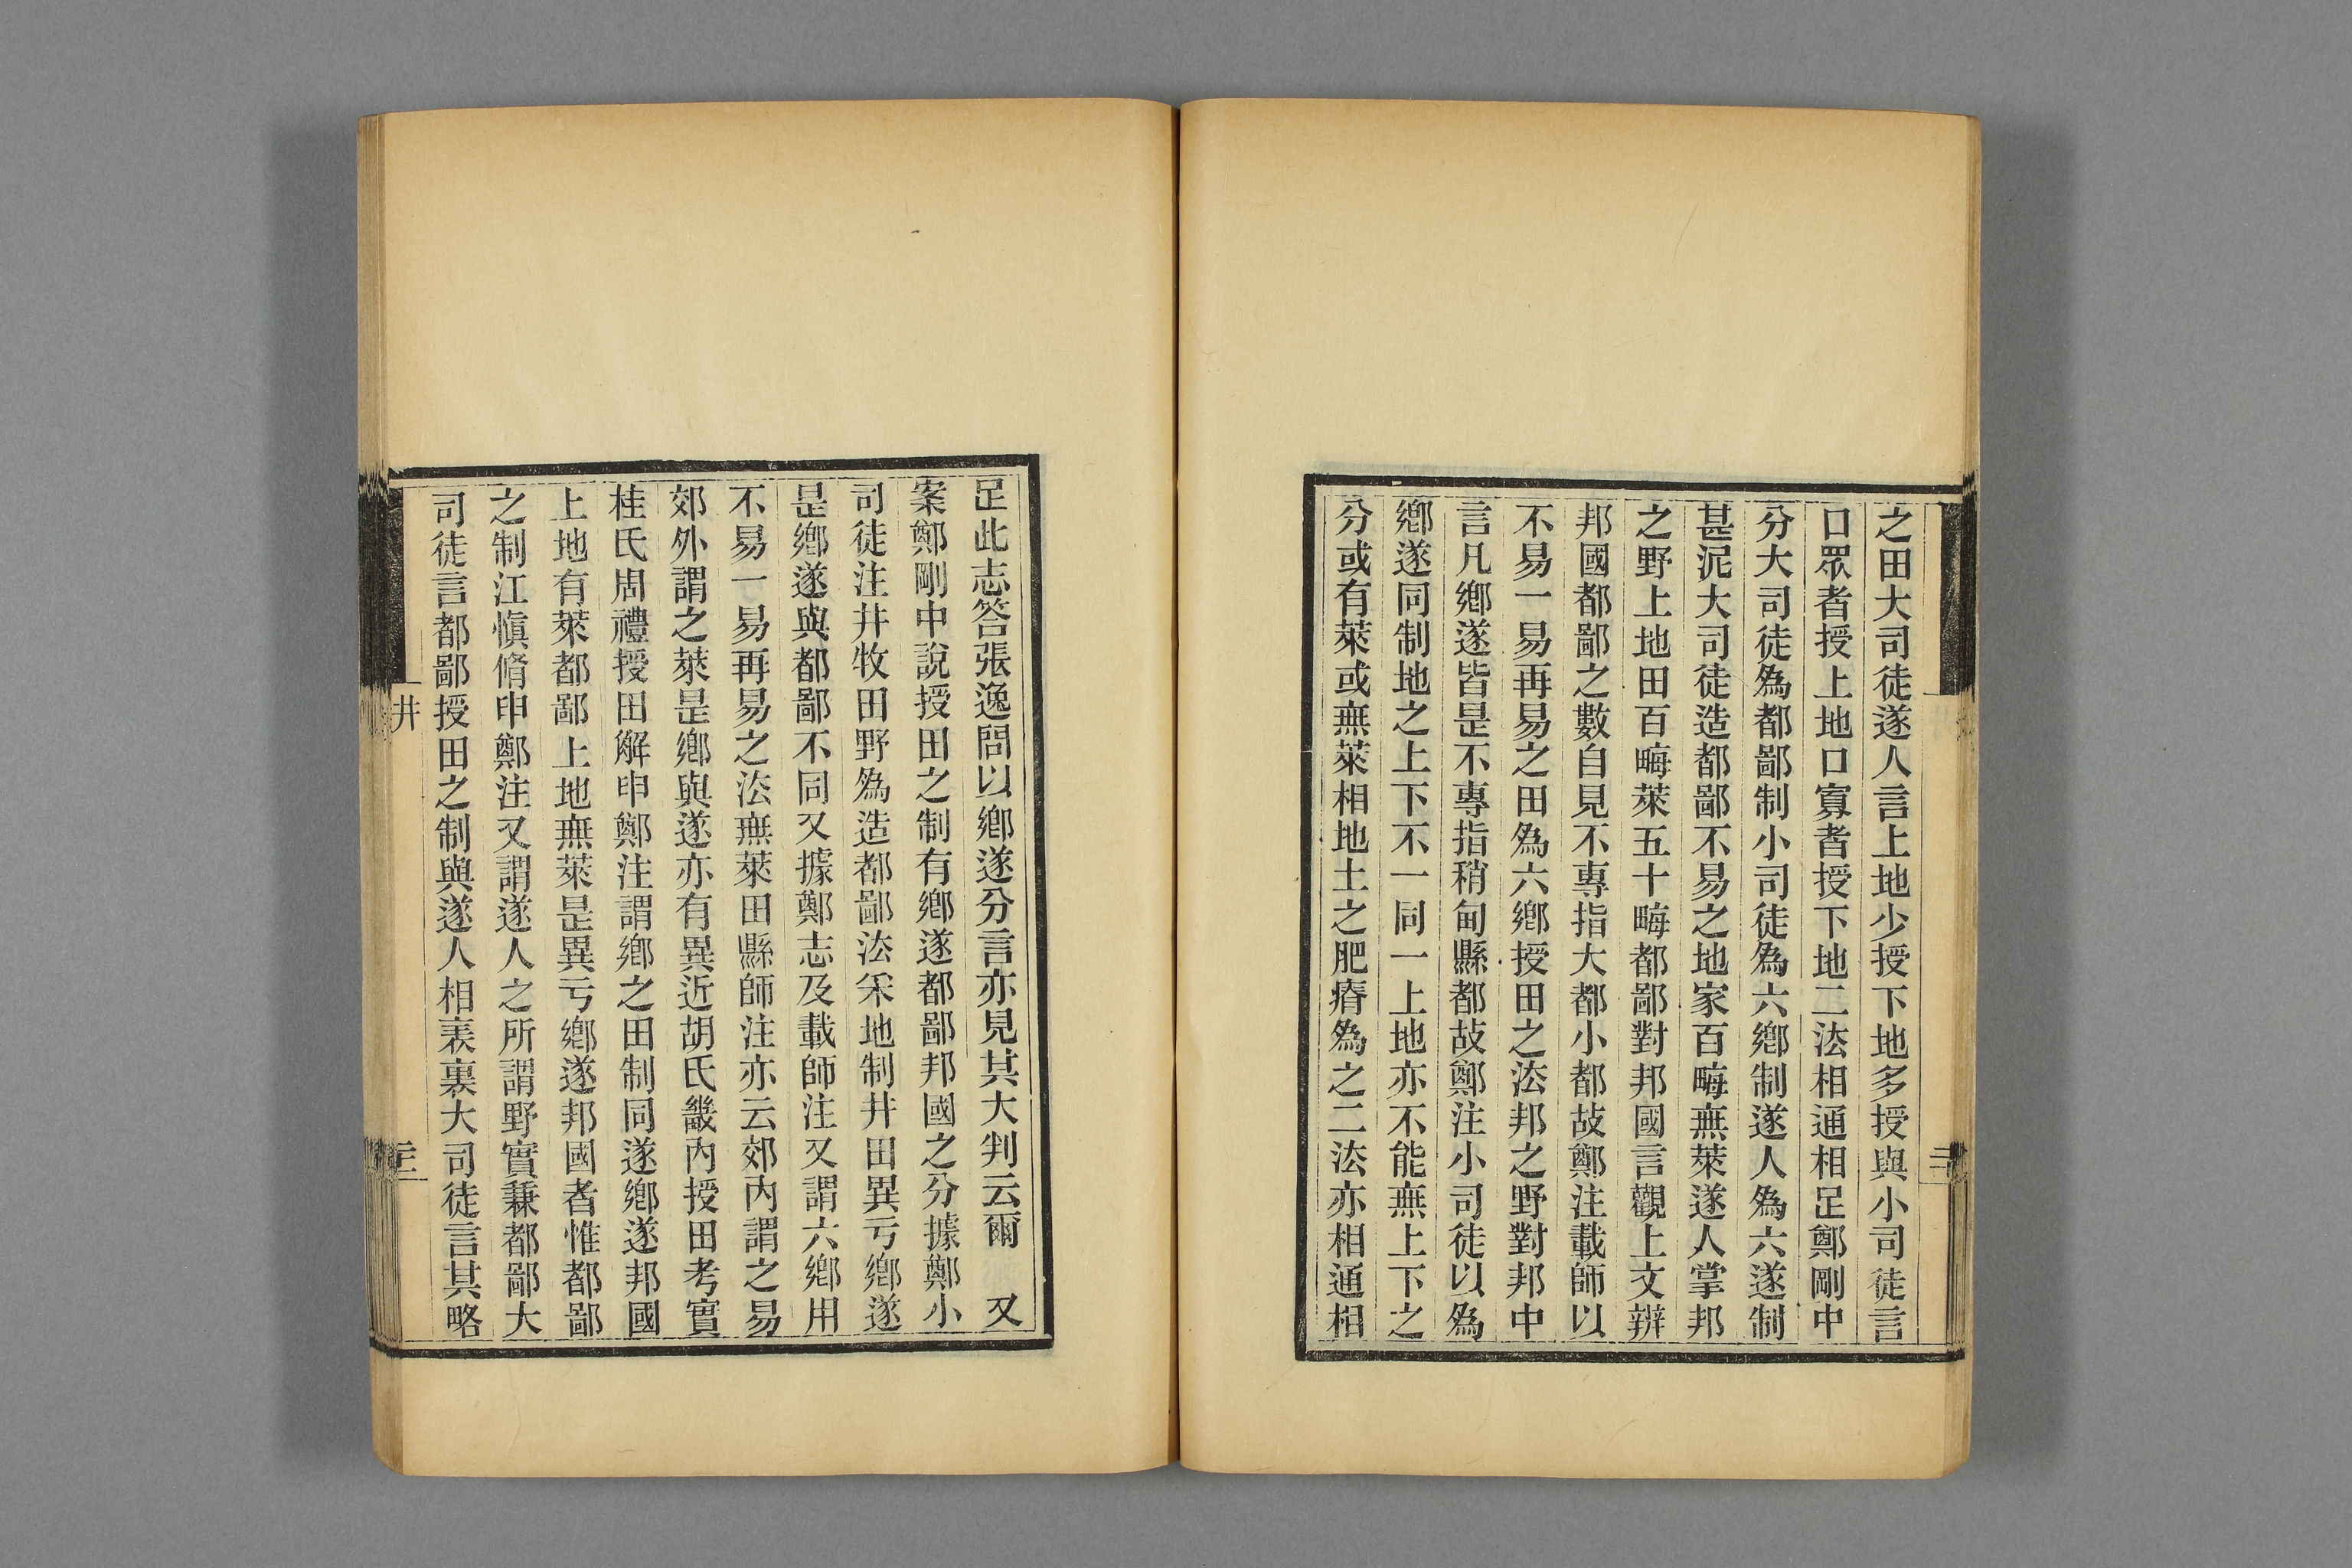 之田大司徒遂人言上地少授下地多授與小司徒言
口眾者授上地口寡者授下地二㳒相通相足鄭剛中
分大司徒為都鄙制小司徒為六鄉制遂人為六遂制
甚泥大司徒造都鄙不易之地家百畮無萊遂人掌邦
之野上地田百畮萊五十畮都鄙對邦國言觀上文辨
邦國都鄙之數自見不專指大都小都故鄭注載師以
不易一易再易之田為六鄉授田之㳒邦之野對邦中
言凡鄉遂皆是不專指稍甸縣都故鄭注小司徒以為
鄉遂同制地之上下不一同一上地亦不能無上下之
分或有萊或無萊相地土之肥瘠為之二㳒亦相通相
足此志答張逸問以鄉遂分言亦見其大判云爾　又
案鄭剛中說授田之制有鄉遂都鄙邦國之分據鄭小
司徒注井牧田野為造都鄙㳒采地制井田異亏鄉遂
是鄉遂與都鄙不同又據鄭志及載師注又謂六鄉用
不易一易再易之㳒無萊田縣師注亦云郊內謂之易
郊外謂之萊是鄉與遂亦有異近胡氏畿內授田考實
桂氏周禮授田解申鄭注謂鄉之田制同遂鄉遂邦國
上地有萊都鄙上地無萊是異亏鄉遂邦國者惟都鄙
之制江慎脩申鄭注又謂遂人之所謂野實兼都鄙大
司徒言都鄙授田之制與遂人相表裏大司徒言其略
井